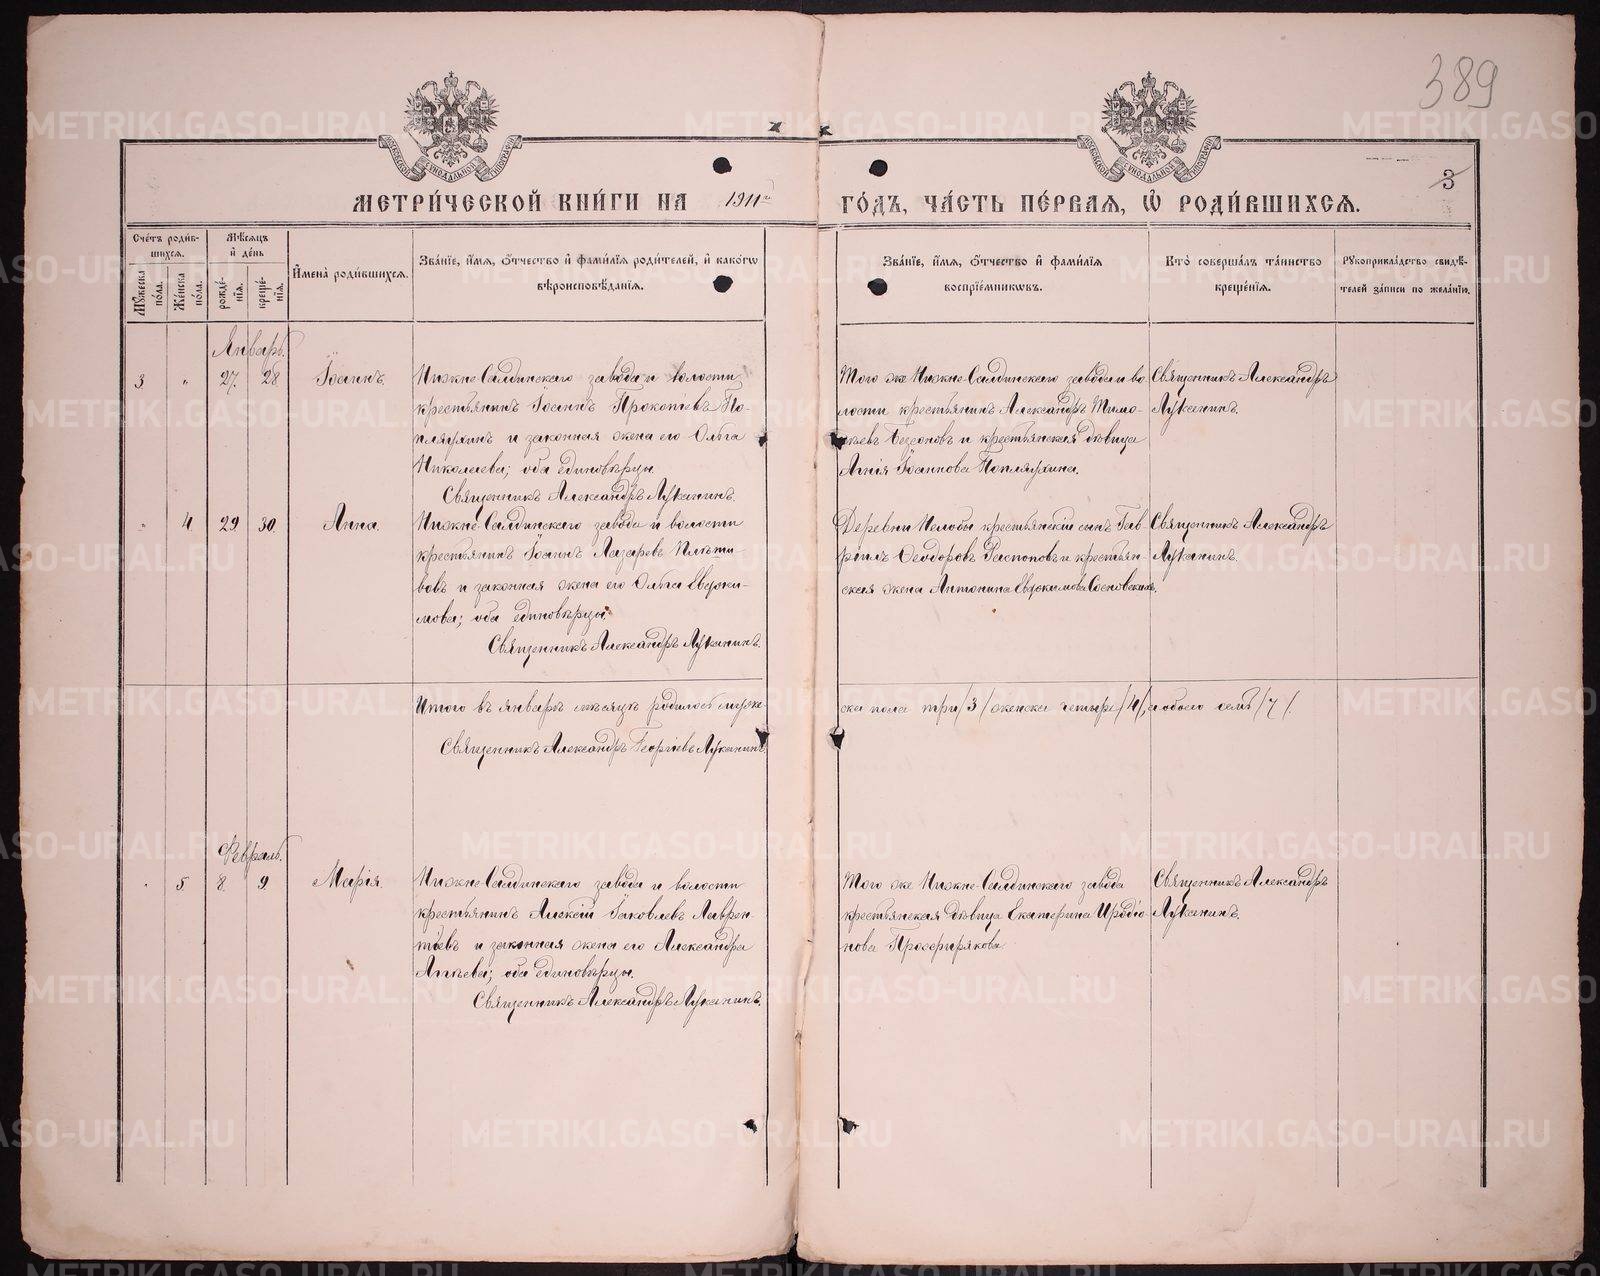 389
МОСКОВСКОЙ СУНОДАЛЬНОЙ ТИПОГРАФІИ
МОСКОВСКОЙ СУНОДАЛЬНОЙ ТИПОГРАФІИ
3
МЕТРИ́ЧЕСКОЙ КНИ́ГИ НА 1911 ГО́ДЪ, ЧА́СТЬ ПЕ́РВАЯ, Ѡ҆ РОДИ́ВШИХСЯ.
Сче́тъ роди́в-
шихся.
Мꙋжеска по́ла.
Же́нска по́ла.
Мѣ́сяцъ
и҆ де́нь
рожде́-
нїя.
креще́-
нїя.
И҆мена̀ роди́вшихся.
Зва́нїе, и҆́мя, ѻ҆́тчество и҆ фами́лїя роди́телей, и҆ како́гѡ
вѣроисповѣ́данїя.
Зва́нїе, и҆́мя, ѻ҆́тчество и҆ фами́лїя
воспрїе́мникѡвъ.
Кто̀ соверша́лъ та́инство
креще́нїя.
Рꙋкоприкла́дство свидѣ́-
телей за́писи по жела́нїю.
Январь.
3 " 27. 28 Іоаннъ.
Нижне-Салдинскаго завода и волости
крестьянинъ Іоаннъ Прокопіевъ По-
пляухинъ и законная жена его Ольга
Николаева; оба единовѣрцы
Священникъ Александръ Луканинъ.
Того же Нижне-Салдинскаго завода и во-
лости крестьянинъ Александръ Тимо-
ѳеевъ и крестьянская дѣвица
Агнія Іоаннова Попляухина.
Священникъ Александръ
Луканинъ.
" 4 29 30. Анна.
Нижне-Салдинскаго завода и волости
крестьянинъ Іоаннъ Лазаревъ
и законная жена его Ольга Евдоки-
мова; оба единовѣрцы.
Священникъ Александръ Луканинъ.
Деревни Нелобы крестьянскій сынъ Гав-
ріилъ Ѳеодоровъ Распоповъ и крестьян-
ская жена Антонина Евдокимова Сосновских.
Священникъ Александръ
Луканинъ.
Итого въ январѣ мѣсяцѣ родилось муже-
ска пола три /3/ женска четыре /4/, а обоего семь /7/.
Священникъ Александръ Георгіевъ Луканинъ
Февраль.
" 5 8 9 Марія.
Нижне-Салдинскаго завода и волости
крестьянинъ Алексій Іаковлевъ Лаврен-
тьевъ и законная жена его Александра
оба единовѣрцы.
Священникъ Александръ Луканинъ.
Того же Нижне-Салдинскаго завода
крестьянская дѣвица Екатерина Иродіо-
нова Просфирякова
Священникъ Александръ
Луканинъ.
METRIKI.GASO-URAL.RU